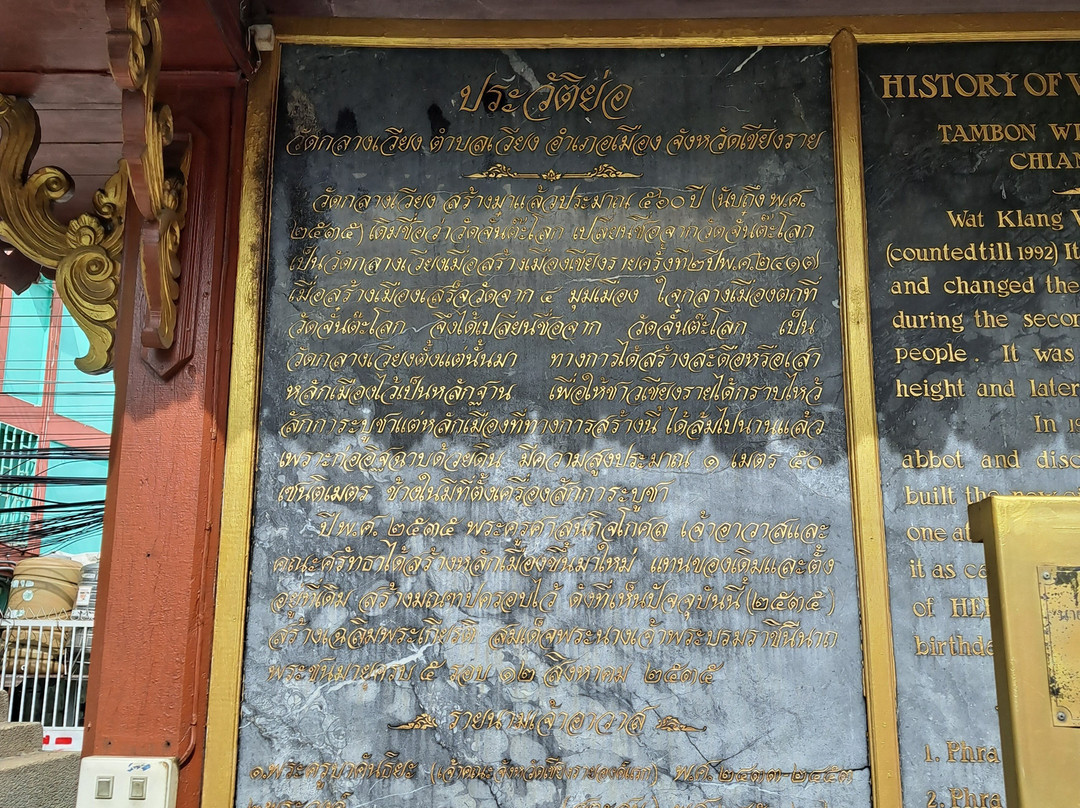 ประวัติย่อ
วัดกลางเวียง ตำบลเวียง อำเภอเมือง จังหวัดเชียงราย
วัดกลางเวียง สร้างมาแล้วประมาณ ๕๖๐ ปี (นับถึง พ.ศ.
๒๕๓๕) เดิมชื่อว่าวัดจั๋นต๊ะโลก เปลี่ยนชื่อจากวัดจั๋นต๊ะโลก
เป็นวัดกลางเวียงเมื่อสร้างเมืองเชียงรายครั้งที่๒ปีพ.ศ.๒๔๑๗
เมื่อสร้างเมืองเสร็จวัดจาก ๔ มุมเมือง ใจกลางเมืองตกที่
วัดจั๋นต๊ะโลก จึงได้เปลี่ยนชื่อจาก วัดจั๋นต๊ะโลก เป็น
วัดกลางเวียงตั้งแต่นั้นมา ทางการได้สร้างสะดือหรือเสา
หลักเมืองไว้เป็นหลักฐาน เพื่อให้ชาวเชียงรายได้กราบไหว้
สักการะบูชาแต่หลักเมืองที่ทางการสร้างนี้ ได้ล้มไปนานแล้ว
เพราะก่ออิฐฉาบด้วยดิน มีความสูงประมาณ ๑ เมตร ๕๐
เซนติเมตร ข้างในมีที่ตั้งเครื่องสักการะบูชา
ปีพ.ศ. ๒๕๓๕ พระครูศาสนกิจโกศล เจ้าอาวาสและ
คณะศรัทธาได้สร้างหลักเมืองขึ้นมาใหม่ แทนของเดิมและตั้ง
อยู่ที่เดิม สร้างมณฑปครอบไว้ ดังที่เห็นปัจจุบันนี้ (๒๕๓๕)
สร้างเฉลิมพระเกียรติ สมเด็จพระนางเจ้าพระบรมราชินีนาถ
พระชนมายุครบ ๕ รอบ ๑๒ สิงหาคม ๒๕๓๕
รายนามเจ้าอาวาส
๑.พระครูบาคันธิยะ (เจ้าคณะจังหวัดเชียงราย พ.ศ. ๒๔๓๓-๒๔๕๓
HISTORY OF
TAMBON
CHIAN
Wat Klang
(counted till 1992) It
and changed the
during the secon
people. It was
height and later
In 19
abbot and
built the new
one at
it as
of
birthd
1. Phra
2. Phra